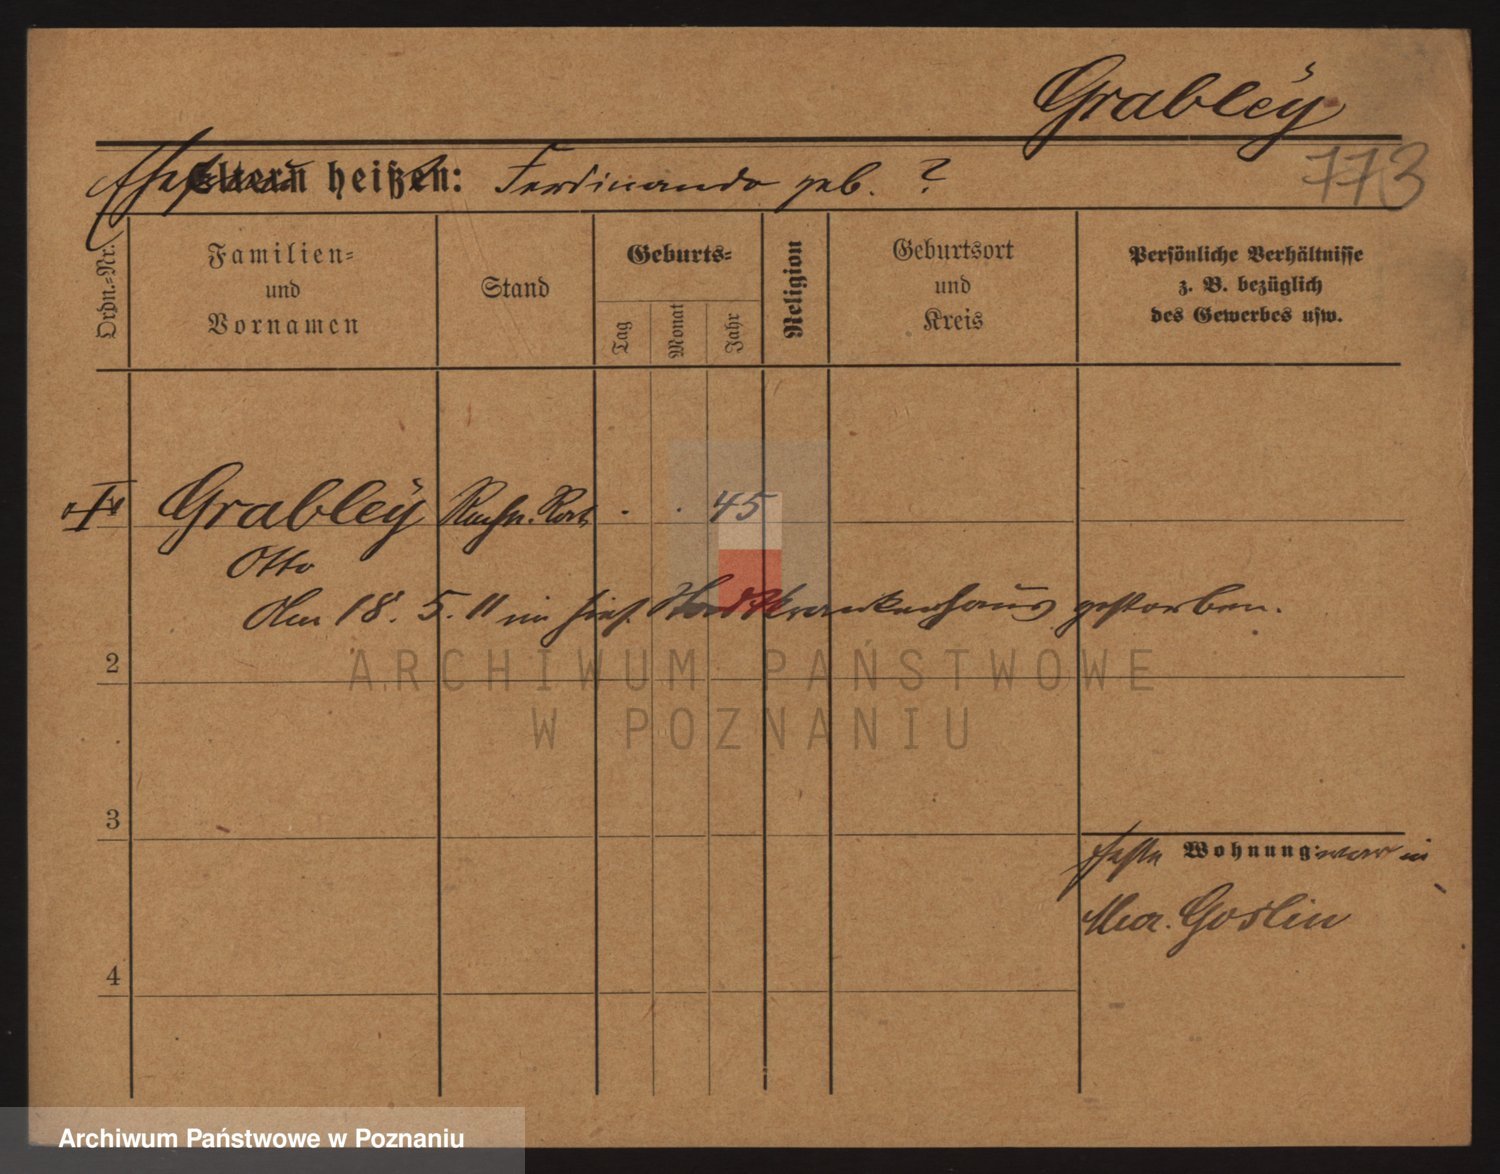 Grabley
773
Eltern heißen: Ferdinande geb. ?
Ordn.=Nr.
Familien=
und
Vornamen
Stand
Geburts=
Tag
Monat
Jahr
Religion
Geburtsort
und
Kreis
Persönliche Verhältnisse
z. B. bezüglich
des Gewerbes usw.
Grabley 45
Otto
Am 18. 5. 11 im hies. Stadtkrankenhaus gestorben.
2
ARCHIWUM PAŃSTWOWE
W POZNANIU
3
Wohnung: war in
Mur. Goslin
4
Archiwum Państwowe w Poznaniu